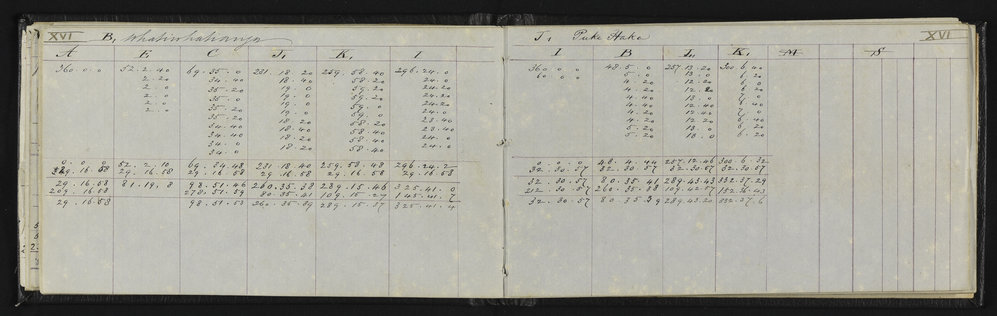 XVI B, Whatiwhatiwanga
A E C J, K, I
360 . 0 . 0 52 . 2 . 40 69 . 35 . 0 231 . 18 . 20 259 . 58 . 40 296 . 24 . 0
2 . 20 34 . 40 18 . 40 58 . 20 24 . 0
2 . 0 35 . 20 19 . 0 59 . 20 24 . 20
2 . 0 35 . 0 19 . 0 59 . 20 24 . 20
2 . 0 35 . 20 19 . 0 59 . 0 24 . 20
2 . 0 35 . 20 19 . 0 59 . 0 24 . 0
35 . 20 18 . 20 58 . 20 23 . 40
34 . 40 18 . 40 58 . 40 23 . 40
34 . 40 18 . 20 58 . 40 24 . 0
34 . 0 18 . 20 58 . 40 24 . 0
34 . 0 58 . 40
0 . 0 . 0 52 . 2 . 10 69 . 34 . 48 231 . 18 . 40 259 . 58 . 48 296 . 24 . 2
29 . 16 . 58 29 . 16 . 58 29 . 16 . 58 29 . 16 . 58 29 . 16 . 58
29 . 16 . 58 81 . 19 . 8 98 . 51 . 46 260 . 35 . 38 289 . 15 . 46 325 . 41 . 0
209 . 16 . 58 278 . 51 . 59 80 . 35 . 41 109 . 15 . 27 145 . 41 .
29 . 16 . 58 98 . 51 . 53 260 . 35 . 39 289 . 15 . 37 325 . 41 . 4
J, Puke Hake XVI
I B L, K, M S
360 . 0 . 0 48 . 5 . 0 257 . 13 . 20 300 . 6 . 40
60 . 0 . 0 5 . 0 13 . 0 6 . 20
4 . 20 12 . 40 6 . 0
4 . 20 12 . 20 6 . 20
4 . 40 13 . 0 7 . 0
4 . 40 12 . 40 6 . 40
4 . 40 12 . 40 7 . 0
4 . 20 12 . 20 6 . 40
5 . 20 13 . 0 6 . 20
5 . 20 13 . 0 6 . 20
0 . 0 . 0 48 . 4 . 44 257 . 12 . 46 300 . 6 . 32
32 . 30 . 57 32 . 30 . 57 32 . 30 . 57 32 . 30 . 57
32 . 30 . 57 80 . 35 . 41 289 . 43 . 43 332 . 37 . 29
212 . 30 . 57 260 . 35 . 38 109 . 42 . 57 152 . 36 . 43
32 . 30 . 57 80 . 35 . 39 289 . 43 . 20 332 . 37 . 6